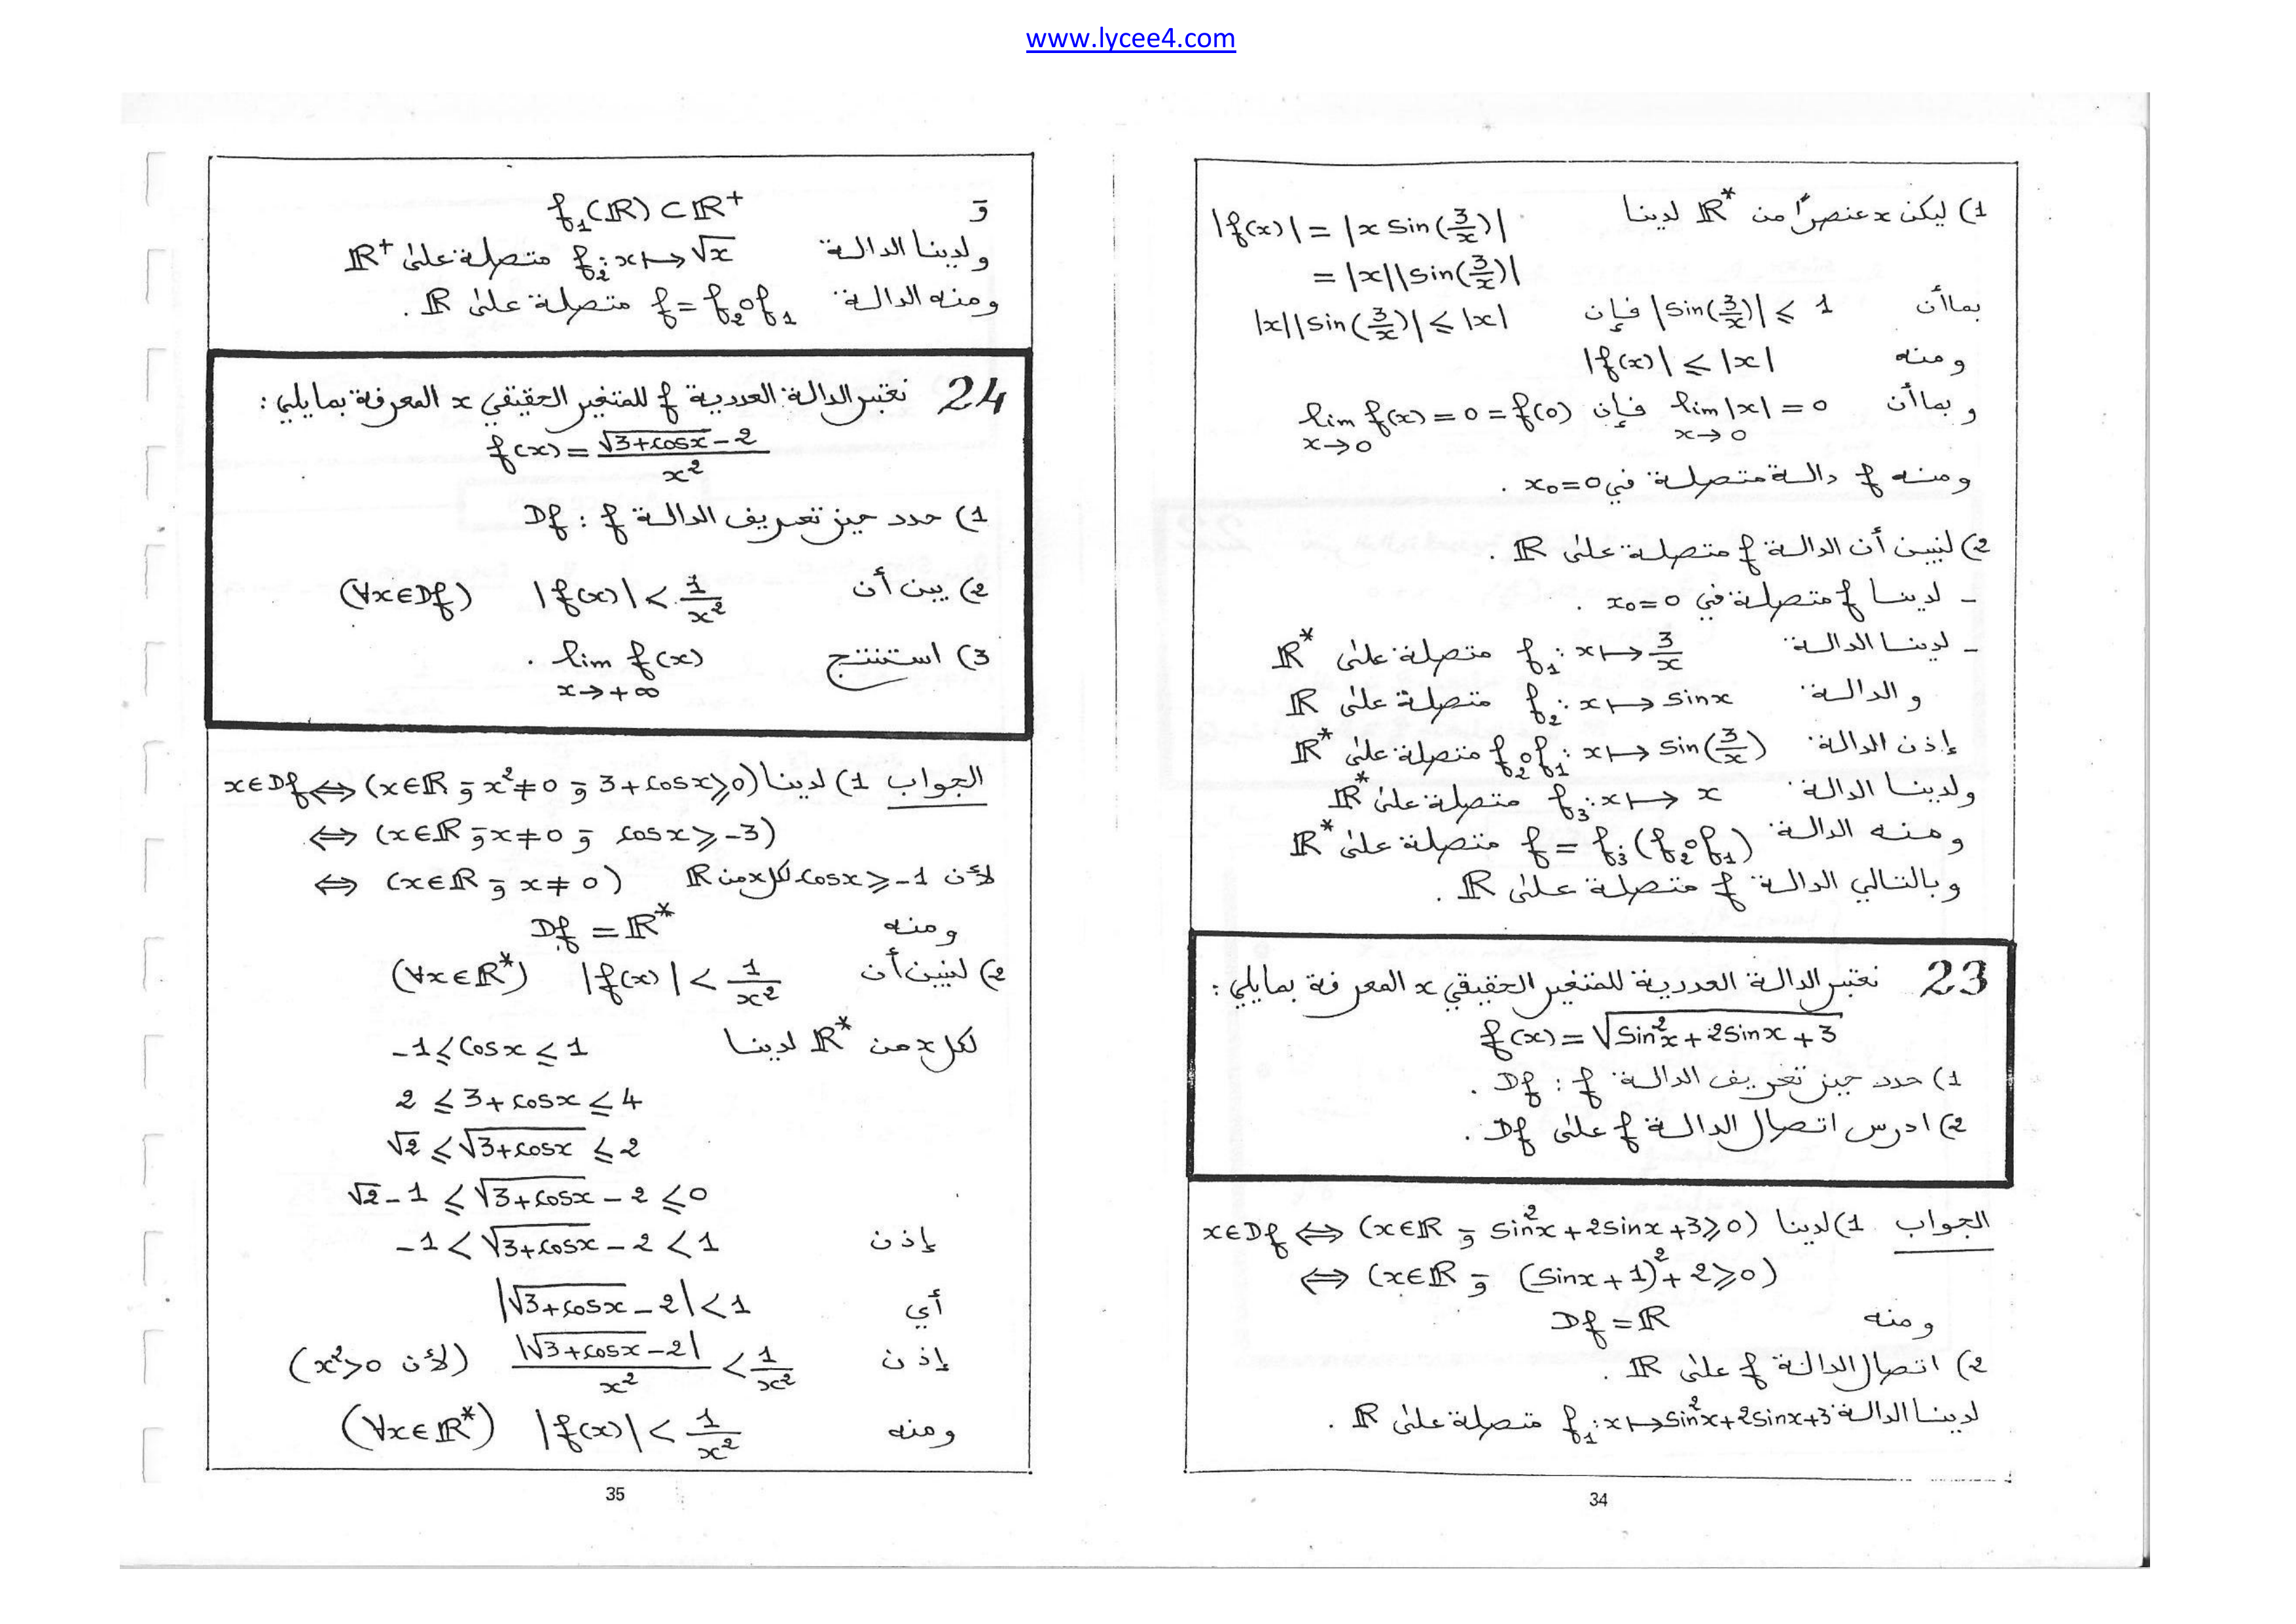 www.lycee4.com
1) ليكن x عنصرًا من ℝ* لدينا |f(x)| = |x sin(3/x)|
= |x||sin(3/x)|
بما أن |sin(3/x)| ⩽ 1 فإن |x||sin(3/x)| ⩽ |x|
ومنه |f(x)| ⩽ |x|
وبما أن lim_{x→0} |x| = 0 فإن lim_{x→0} f(x) = 0 = f(0)
ومنه f دالة متصلة في x₀=0 .
2) لنبين أن الدالة f متصلة على ℝ .
- لدينا f متصلة في x₀=0 .
- لدينا الدالة f₁ : x ↦ 3/x متصلة على ℝ*
و الدالة f₂ : x ↦ sinx متصلة على ℝ
إذن الدالة f₂∘f₁ : x ↦ sin(3/x) متصلة على ℝ*
ولدينا الدالة f₃ : x ↦ x متصلة على ℝ*
ومنه الدالة f = f₃.(f₂∘f₁) متصلة على ℝ*
وبالتالي الدالة f متصلة على ℝ .
23 نعتبر الدالة العددية للمتغير الحقيقي x المعرفة بمايلي :
f(x) = √(sin²x + 2sinx + 3)
1) حدد حيز تعريف الدالة f : Df .
2) ادرس اتصال الدالة f على Df .
الجواب 1) لدينا x∈Df ⟺ (x∈ℝ و sin²x + 2sinx + 3 ⩾ 0)
⟺ (x∈ℝ و (sinx + 1)² + 2 ⩾ 0)
ومنه Df = ℝ
2) اتصال الدالة f على ℝ .
لدينا الدالة f₁ : x ↦ sin²x + 2sinx + 3 متصلة على ℝ .
34
و f₁(ℝ) ⊂ ℝ⁺
ولدينا الدالة f₂ : x ↦ √x متصلة على ℝ⁺
ومنه الدالة f = f₂∘f₁ متصلة على ℝ .
24 نعتبر الدالة العددية f للمتغير الحقيقي x المعرفة بمايلي :
f(x) = (√(3+cosx) - 2)/x²
1) حدد حيز تعريف الدالة f : Df
2) بين أن |f(x)| < 1/x² (∀x∈Df)
3) استنتج lim_{x→+∞} f(x) .
الجواب 1) لدينا x∈Df ⟺ (x∈ℝ و x²≠0 و 3+cosx ⩾ 0)
⟺ (x∈ℝ و x≠0 و cosx ⩾ -3)
⟺ (x∈ℝ و x≠0) لأن cosx ⩾ -1 لكل x من ℝ
ومنه Df = ℝ*
2) لنبين أن |f(x)| < 1/x² (∀x∈ℝ*)
لكل x من ℝ* لدينا -1 ⩽ cosx ⩽ 1
2 ⩽ 3+cosx ⩽ 4
√2 ⩽ √(3+cosx) ⩽ 2
√2 - 1 ⩽ √(3+cosx) - 2 ⩽ 0
إذن -1 < √(3+cosx) - 2 < 1
أي |√(3+cosx) - 2| < 1
إذن |√(3+cosx) - 2|/x² < 1/x² (لأن x²>0)
ومنه |f(x)| < 1/x² (∀x∈ℝ*)
35